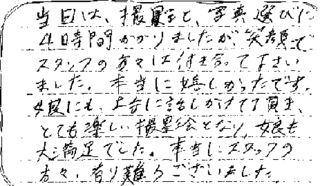 当日は、撮影と、写真選びに
4時間かかりましたが笑顔で
スタッフの方々は付き合って下さい
ました。本当に嬉しかったです。
娘にも、上手に話しかけて頂き、
とても楽しい撮影会となり、娘も
大満足でした。本当にスタッフの
方々、有り難うございました。